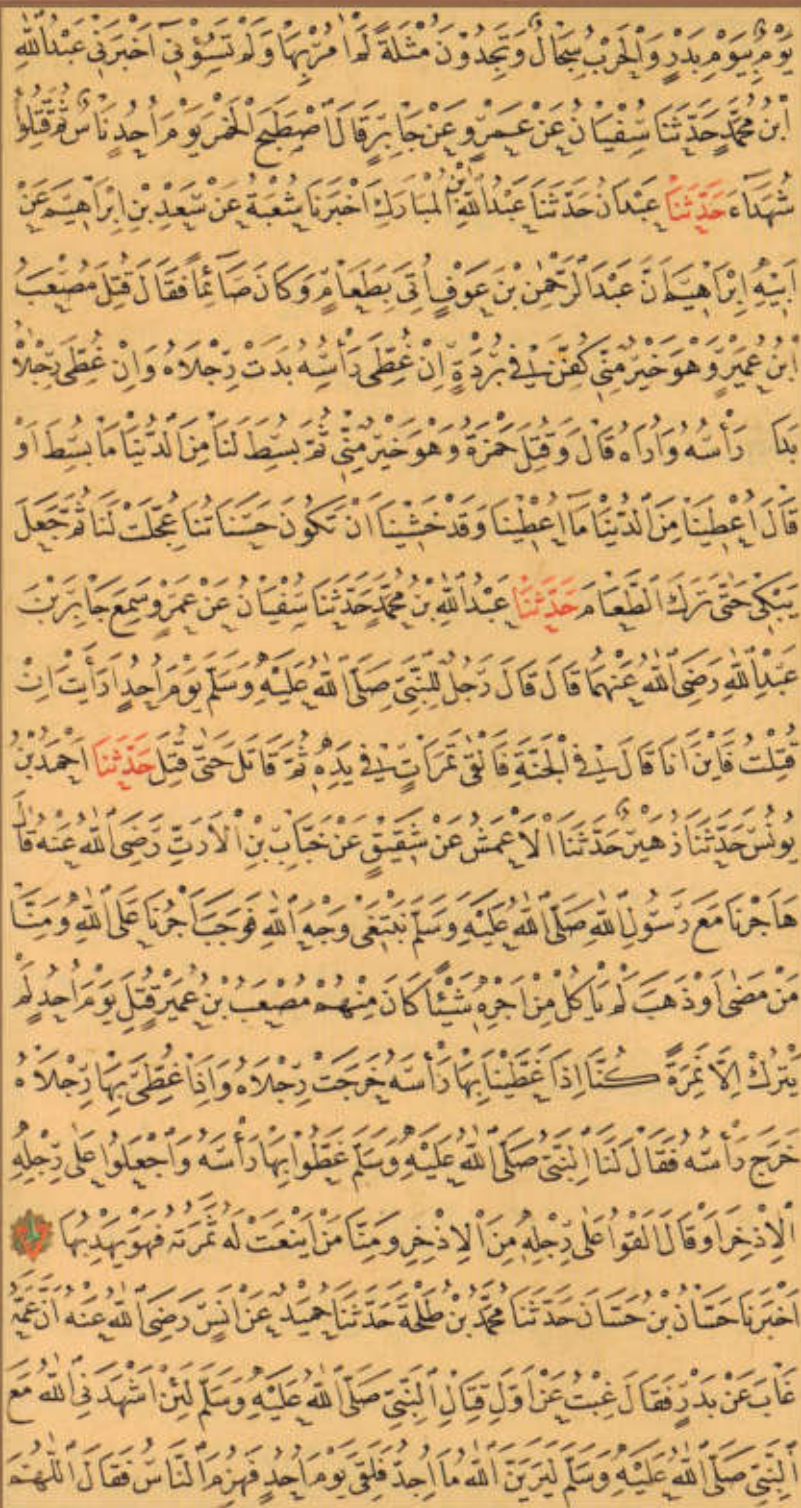 يَوْمٌ بِيَوْمِ بَدْرٍ وَالْحَرْبُ سِجَالٌ وَتَجِدُونَ مُثْلَةً لَمْ اٰمُرْ بِهَا وَلَمْ تَسُؤْنِي اَخْبَرَنِي عَبْدُ اللّٰهِ
ابْنُ مُحَمَّدٍ حَدَّثَنَا سُفْيَانُ عَنْ عَمْرٍو عَنْ جَابِرٍ قَالَ اصْطَبَحَ الْخَمْرَ يَوْمَ اُحُدٍ نَاسٌ ثُمَّ قُتِلُوا
شُهَدَاءَ حَدَّثَنَا عَبْدَانُ حَدَّثَنَا عَبْدُ اللّٰهِ بْنُ الْمُبَارَكِ اَخْبَرَنَا شُعْبَةُ عَنْ سَعْدِ بْنِ اِبْرَاهِيمَ عَنْ
اَبِيهِ اِبْرَاهِيمَ اَنَّ عَبْدَ الرَّحْمٰنِ بْنَ عَوْفٍ اُتِيَ بِطَعَامٍ وَكَانَ صَائِمًا فَقَالَ قُتِلَ مُصْعَبُ
ابْنُ عُمَيْرٍ وَهُوَ خَيْرٌ مِنِّي كُفِّنَ فِي بُرْدَةٍ اِنْ غُطِّيَ رَأْسُهُ بَدَتْ رِجْلَاهُ وَاِنْ غُطِّيَ رِجْلَاهُ
بَدَا رَأْسُهُ وَاُرَاهُ قَالَ وَقُتِلَ حَمْزَةُ وَهُوَ خَيْرٌ مِنِّي ثُمَّ بُسِطَ لَنَا مِنَ الدُّنْيَا مَا بُسِطَ اَوْ
قَالَ اُعْطِينَا مِنَ الدُّنْيَا مَا اُعْطِينَا وَقَدْ خَشِينَا اَنْ تَكُونَ حَسَنَاتُنَا عُجِّلَتْ لَنَا ثُمَّ جَعَلَ
يَبْكِي حَتّٰى تَرَكَ الطَّعَامَ حَدَّثَنَا عَبْدُ اللّٰهِ بْنُ مُحَمَّدٍ حَدَّثَنَا سُفْيَانُ عَنْ عَمْرٍو سَمِعَ جَابِرَ بْنَ
عَبْدِ اللّٰهِ رَضِيَ اللّٰهُ عَنْهُمَا قَالَ قَالَ رَجُلٌ لِلنَّبِيِّ صَلَّى اللّٰهُ عَلَيْهِ وَسَلَّمَ يَوْمَ اُحُدٍ اَرَاَيْتَ اِنْ
قُتِلْتُ فَاَيْنَ اَنَا قَالَ فِي الْجَنَّةِ فَاَلْقٰى تَمَرَاتٍ فِي يَدِهِ ثُمَّ قَاتَلَ حَتّٰى قُتِلَ حَدَّثَنَا اَحْمَدُ بْنُ
يُونُسَ حَدَّثَنَا زُهَيْرٌ حَدَّثَنَا الْاَعْمَشُ عَنْ شَقِيقٍ عَنْ خَبَّابِ بْنِ الْاَرَتِّ رَضِيَ اللّٰهُ عَنْهُ قَالَ
هَاجَرْنَا مَعَ رَسُولِ اللّٰهِ صَلَّى اللّٰهُ عَلَيْهِ وَسَلَّمَ نَبْتَغِي وَجْهَ اللّٰهِ فَوَجَبَ اَجْرُنَا عَلَى اللّٰهِ وَمِنَّا
مَنْ مَضٰى اَوْ ذَهَبَ لَمْ يَأْكُلْ مِنْ اَجْرِهِ شَيْئًا كَانَ مِنْهُمْ مُصْعَبُ بْنُ عُمَيْرٍ قُتِلَ يَوْمَ اُحُدٍ لَمْ
يَتْرُكْ اِلَّا نَمِرَةً كُنَّا اِذَا غَطَّيْنَا بِهَا رَأْسَهُ خَرَجَتْ رِجْلَاهُ وَاِذَا غُطِّيَ بِهَا رِجْلَاهُ
خَرَجَ رَأْسُهُ فَقَالَ لَنَا النَّبِيُّ صَلَّى اللّٰهُ عَلَيْهِ وَسَلَّمَ غَطُّوا بِهَا رَأْسَهُ وَاجْعَلُوا عَلٰى رِجْلِهِ
الْاِذْخِرَ اَوْ قَالَ اَلْقُوا عَلٰى رِجْلِهِ مِنَ الْاِذْخِرِ وَمِنَّا مَنْ اَيْنَعَتْ لَهُ ثَمَرَتُهُ فَهُوَ يَهْدِبُهَا
اَخْبَرَنَا حَسَّانُ بْنُ حَسَّانَ حَدَّثَنَا مُحَمَّدُ بْنُ طَلْحَةَ حَدَّثَنَا حُمَيْدٌ عَنْ اَنَسٍ رَضِيَ اللّٰهُ عَنْهُ اَنَّ عَمَّهُ
غَابَ عَنْ بَدْرٍ فَقَالَ غِبْتُ عَنْ اَوَّلِ قِتَالِ النَّبِيِّ صَلَّى اللّٰهُ عَلَيْهِ وَسَلَّمَ لَئِنْ اَشْهَدَنِيَ اللّٰهُ مَعَ
النَّبِيِّ صَلَّى اللّٰهُ عَلَيْهِ وَسَلَّمَ لَيَرَيَنَّ اللّٰهُ مَا اُجِدُّ فَلَقِيَ يَوْمَ اُحُدٍ فَهُزِمَ النَّاسُ فَقَالَ اللّٰهُمَّ